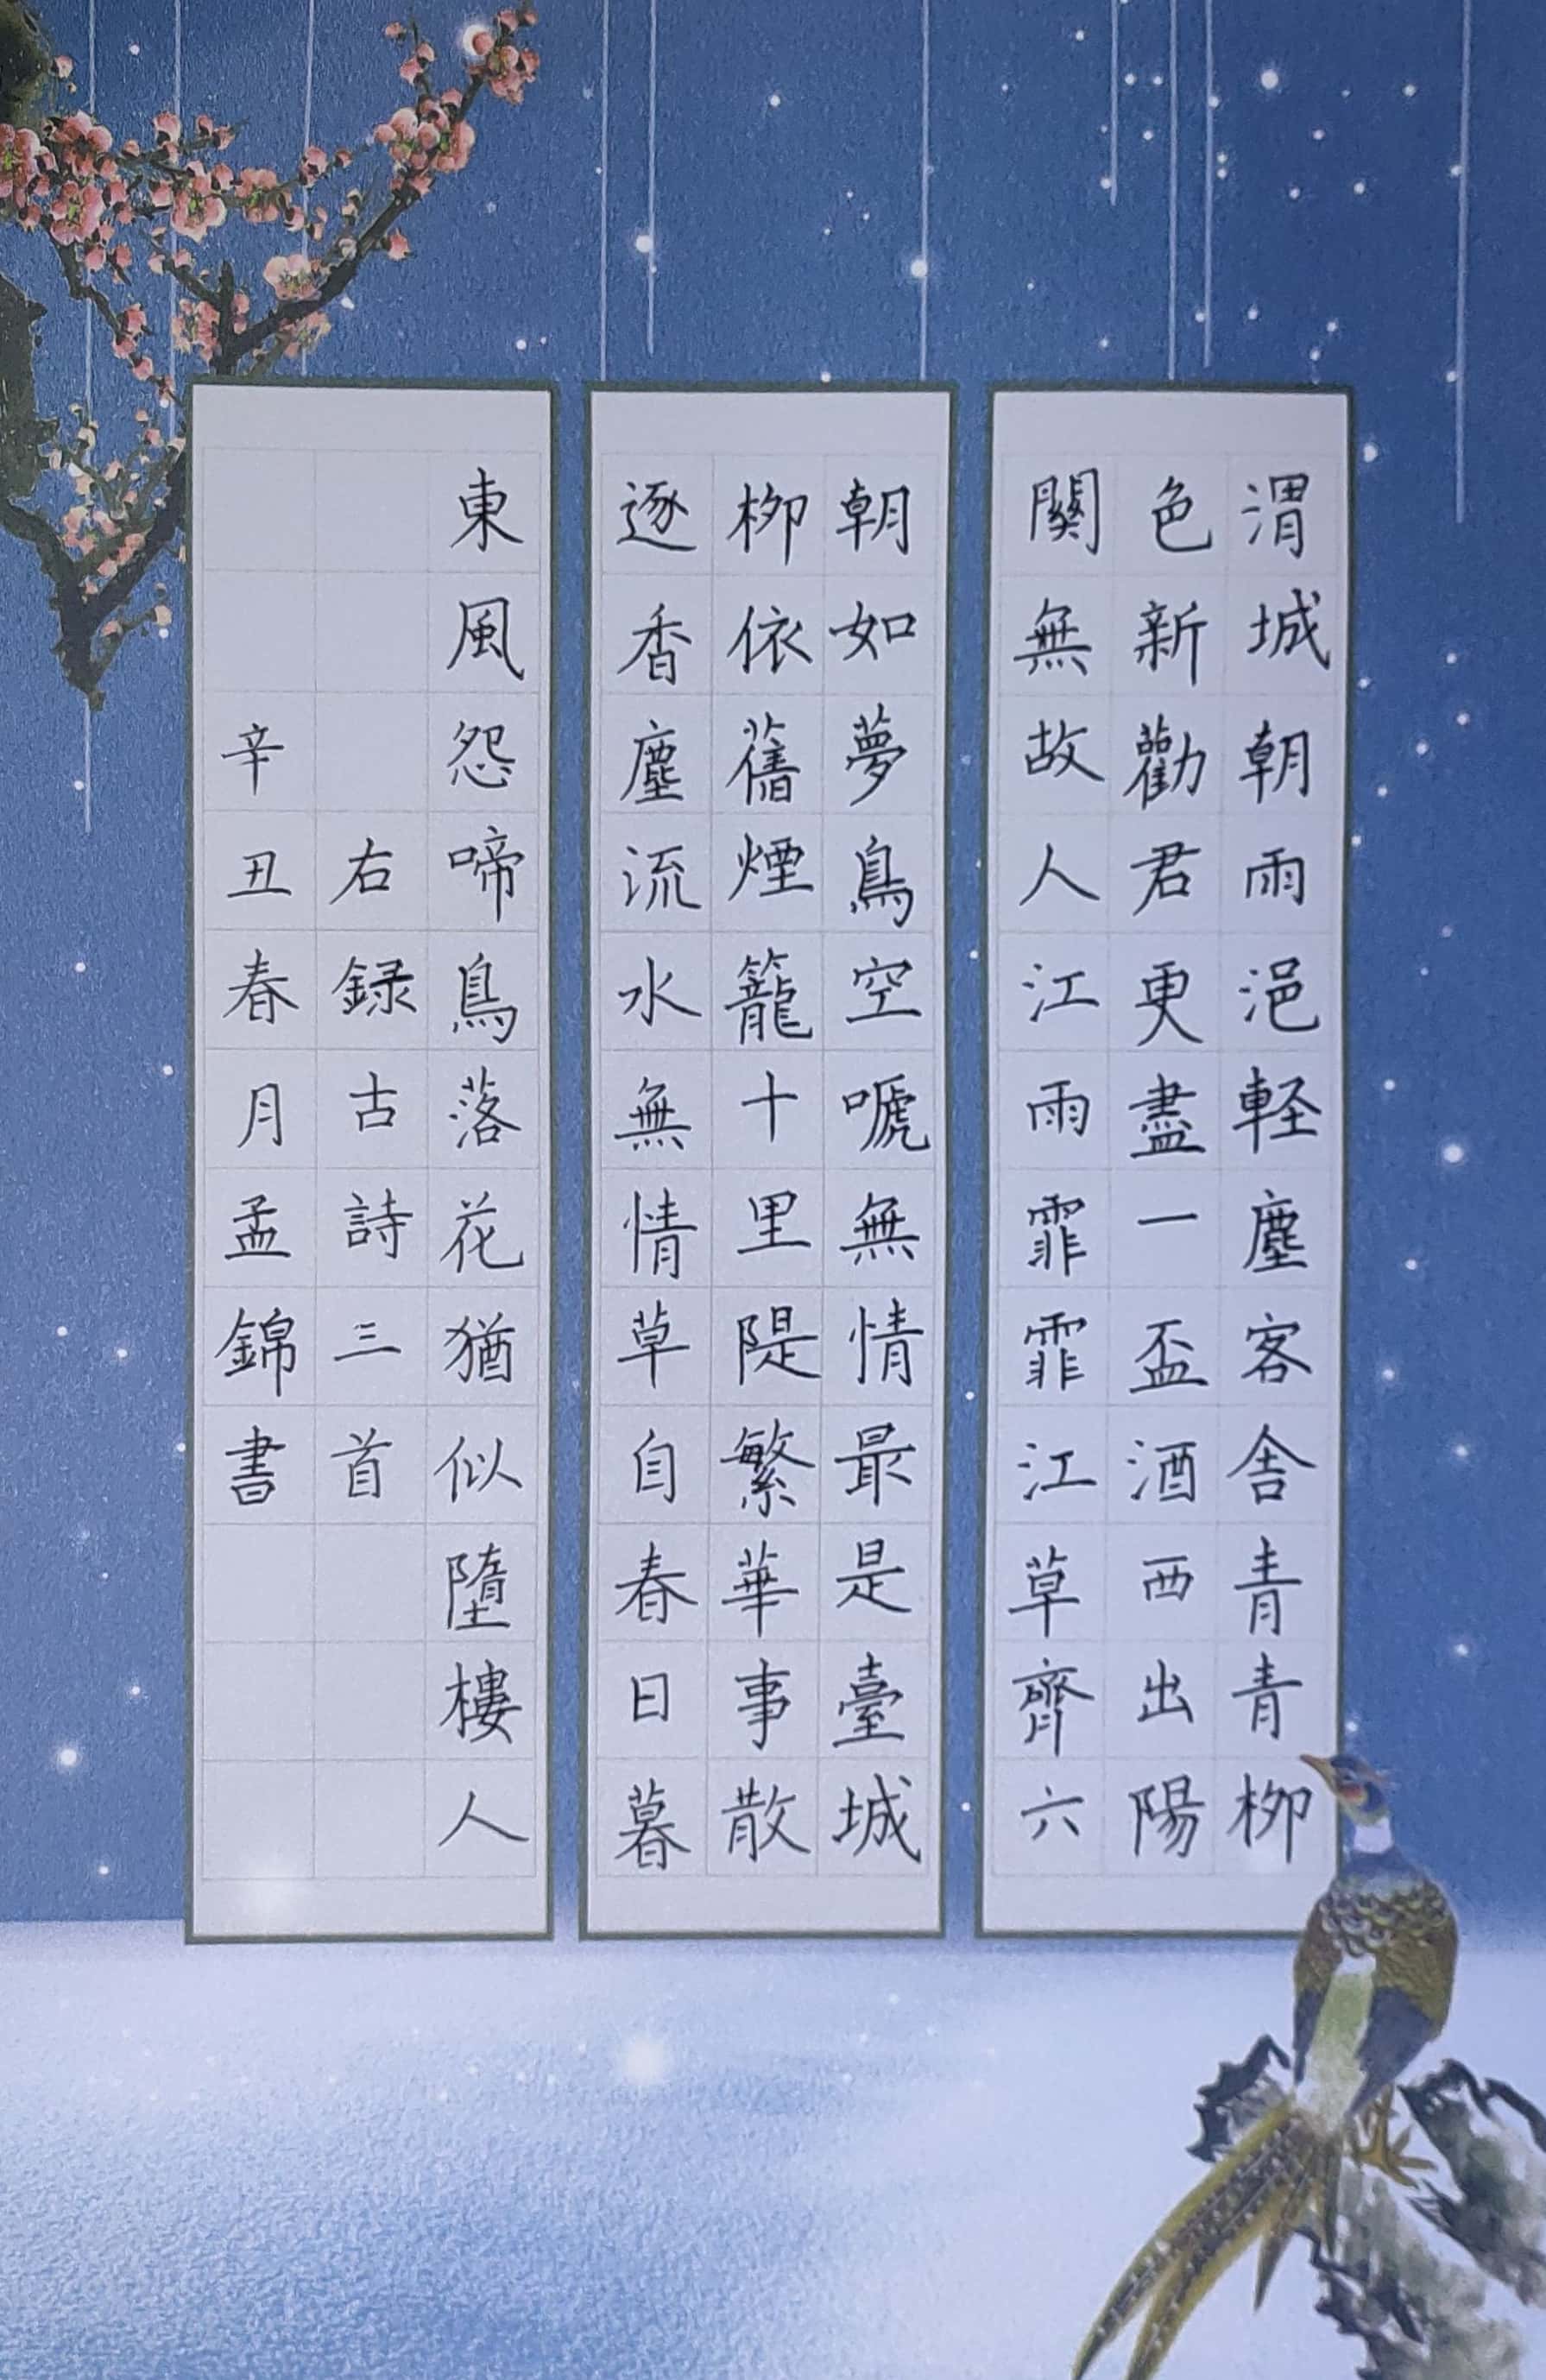 渭城朝雨浥軽塵客舎青青柳
色新勸君更盡一盃酒西出陽
關無故人江雨霏霏江草齊六
朝如夢鳥空嗁無情最是臺城
柳依舊煙籠十里隄繁華事散
逐香塵流水無情草自春日暮
東風怨啼鳥落花猶似墮樓人
右録古詩三首
辛丑春月孟錦書